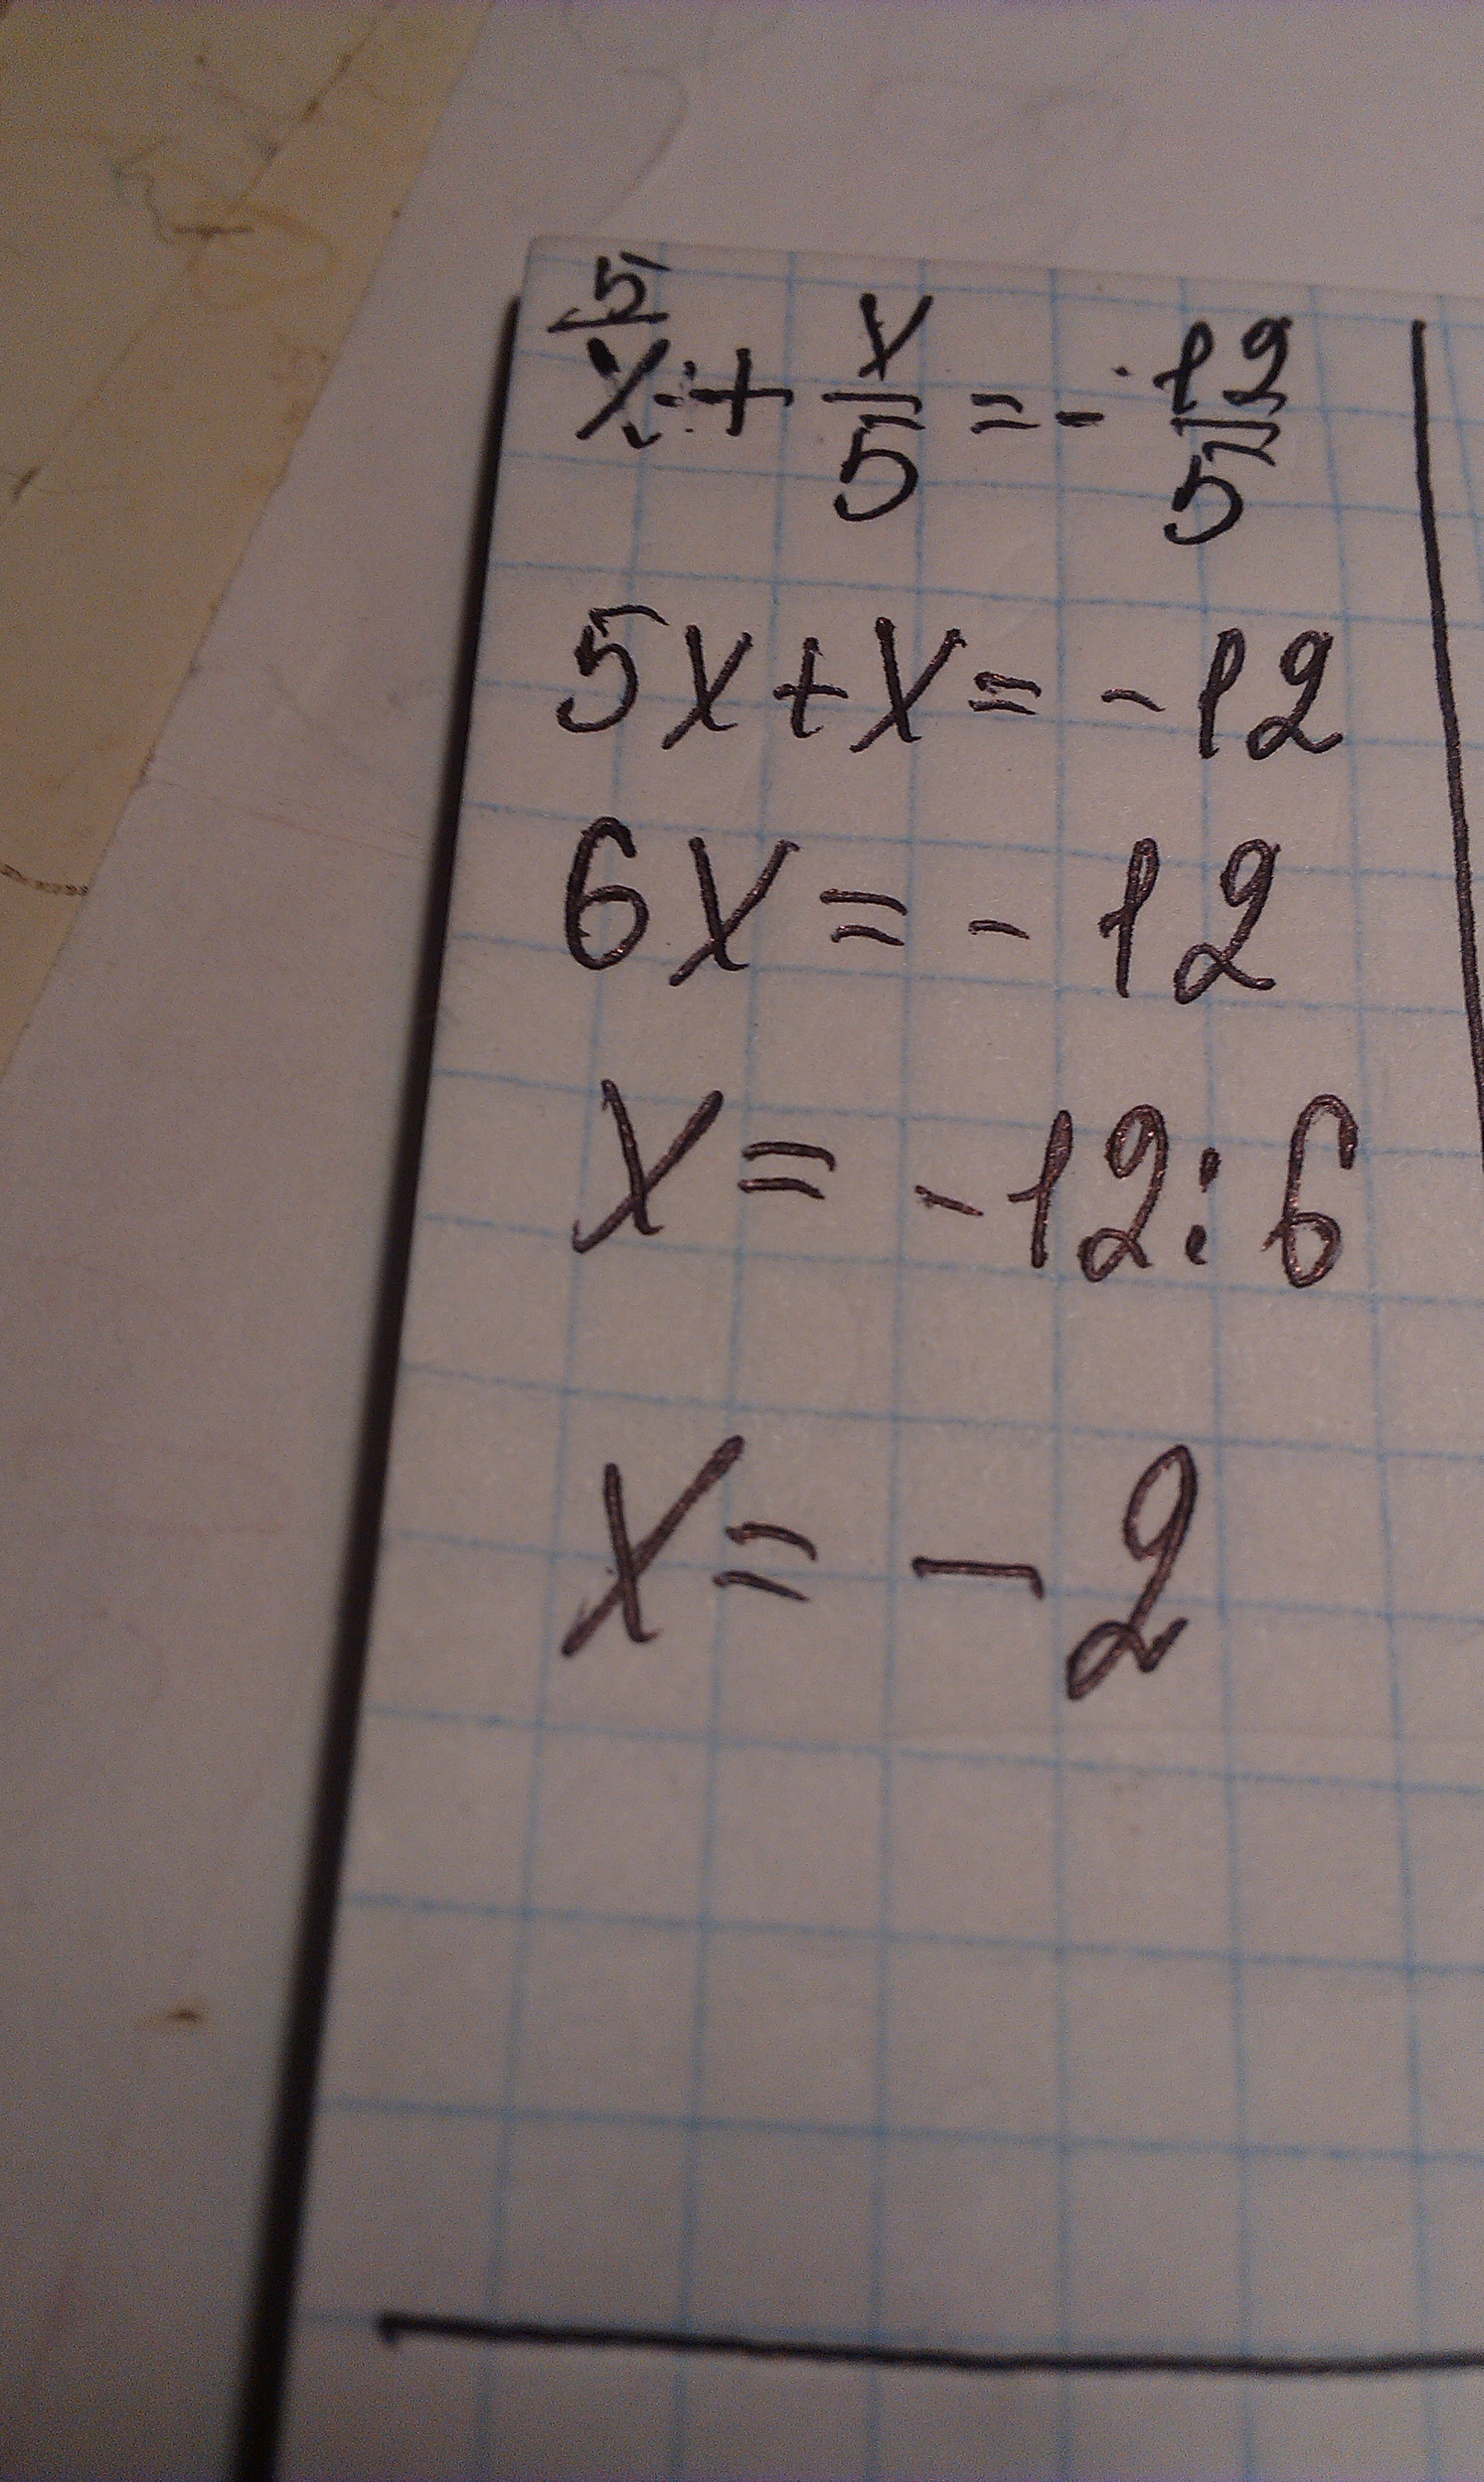 5/x + x/5 = - 12/5
5x + x = - 12
6x = - 12
x = - 12 : 6
x = - 2